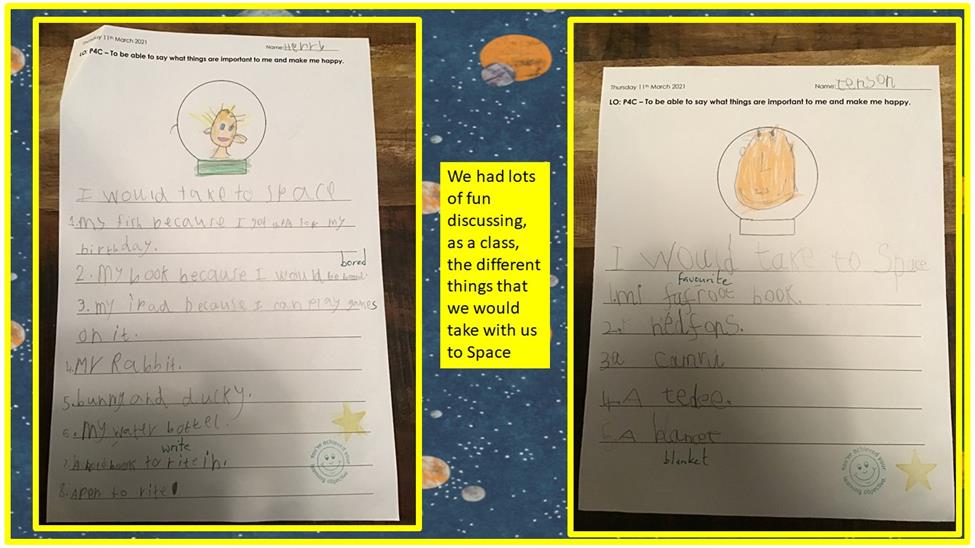 Thursday 11th March 2021
Name: Henry
LO: P4C – To be able to say what things are important to me and make me happy.
I would take to space
1. My fish because I got it for my
birthday.
bored
2. My book because I would be
3. my ipad because I can play games
on it.
4. Mr Rabbit.
5. bunny and ducky.
6. My water bottel.
write
7. A book to rite in.
8. A pen to rite
You've achieved your learning objective.
We had lots
of fun
discussing,
as a class,
the different
things that
we would
take with us
to Space
Thursday 11th March 2021
Name: Jenson
LO: P4C – To be able to say what things are important to me and make me happy.
I would take to Space
favourite
1. mi fafroot book.
2. hedfons.
3 a
4. A tedee.
5. A
blanket
You've achieved your learning objective.